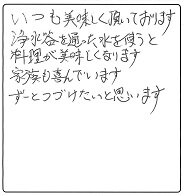 いつも美味しく頂いております
浄水器を通った水を使うと
料理が美味しくなります
家族も喜んでいます
ずーとつづけたいと思います